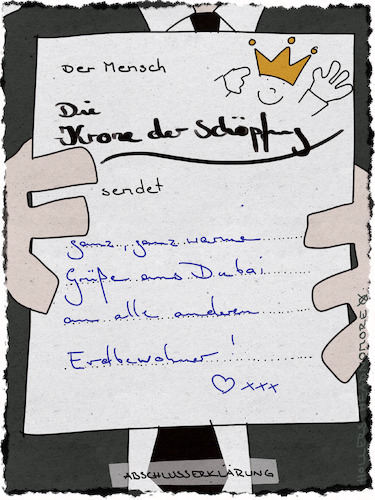 Der Mensch
Die
Krone der Schöpfung
sendet
ganz, ganz warme
Grüße aus Dubai
an alle anderen
Erdbewohner!
♡ xxx
ABSCHLUSSERKLÄRUNG